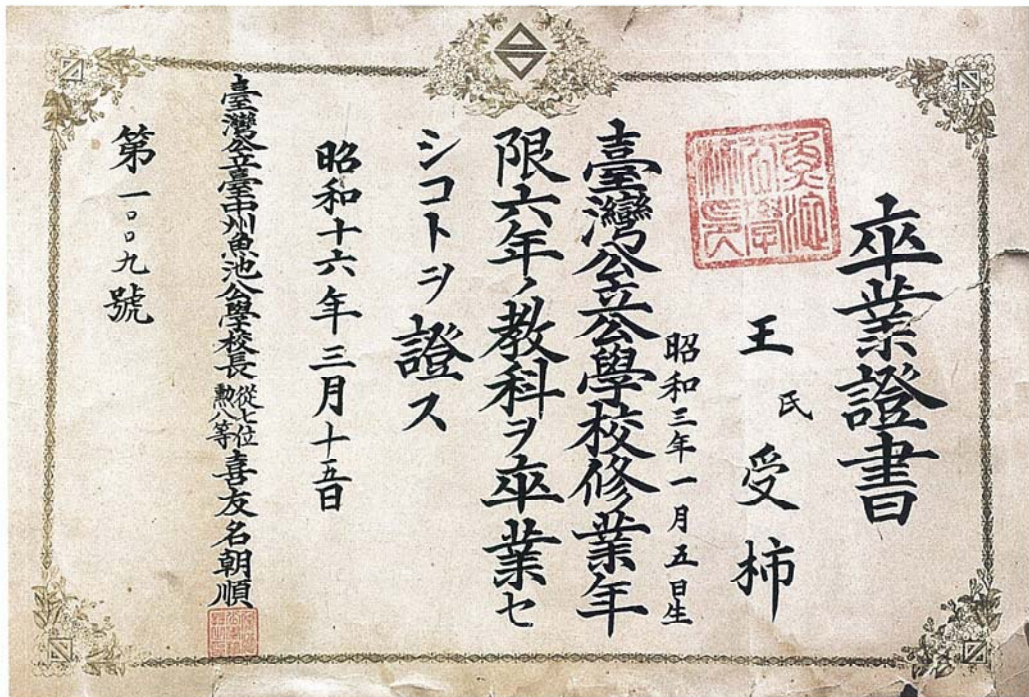 卒業證書
王氏受柿
昭和三年一月五日生
臺灣公立公學校修業年
限六年ノ教科ヲ卒業セ
シコトヲ證ス
昭和十六年三月十五日
臺灣公立臺中州魚池公學校長 從七位勲八等 喜友名朝順
第一〇〇九號